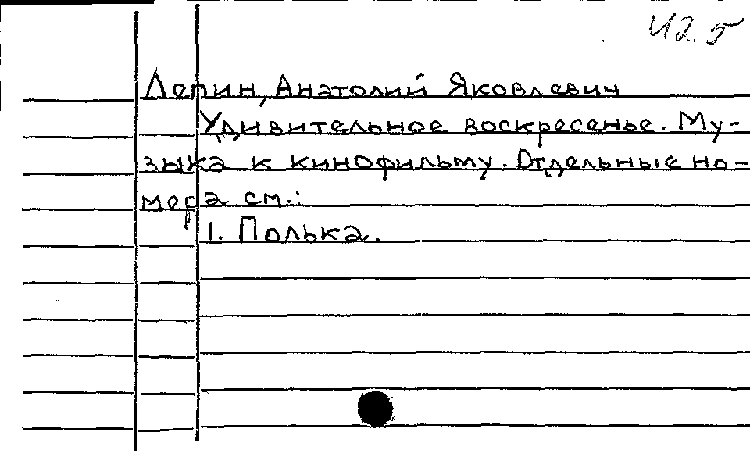 Ч2.5
Лепин, Анатолий Яковлевич
Удивительное воскресенье. Му-
зыка к кинофильму. Отдельные но-
мера см.:
1. Полька.